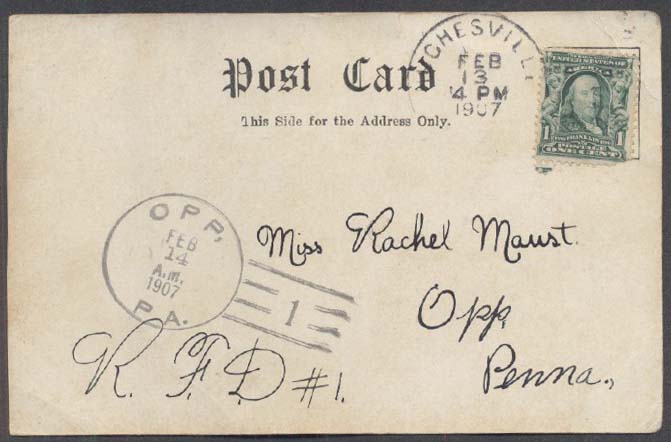 Post Card
This Side for the Address Only.
CHESVILL
FEB
13
4 PM
1907
UNITED STATES OF
AMERICA
1 1
POSTAGE
ONE CENT
OPP,
FEB
14
A.M.
1907
PA.
1
Miss Rachel Maust.
Opp,
Penna.,
R. F. D #1.